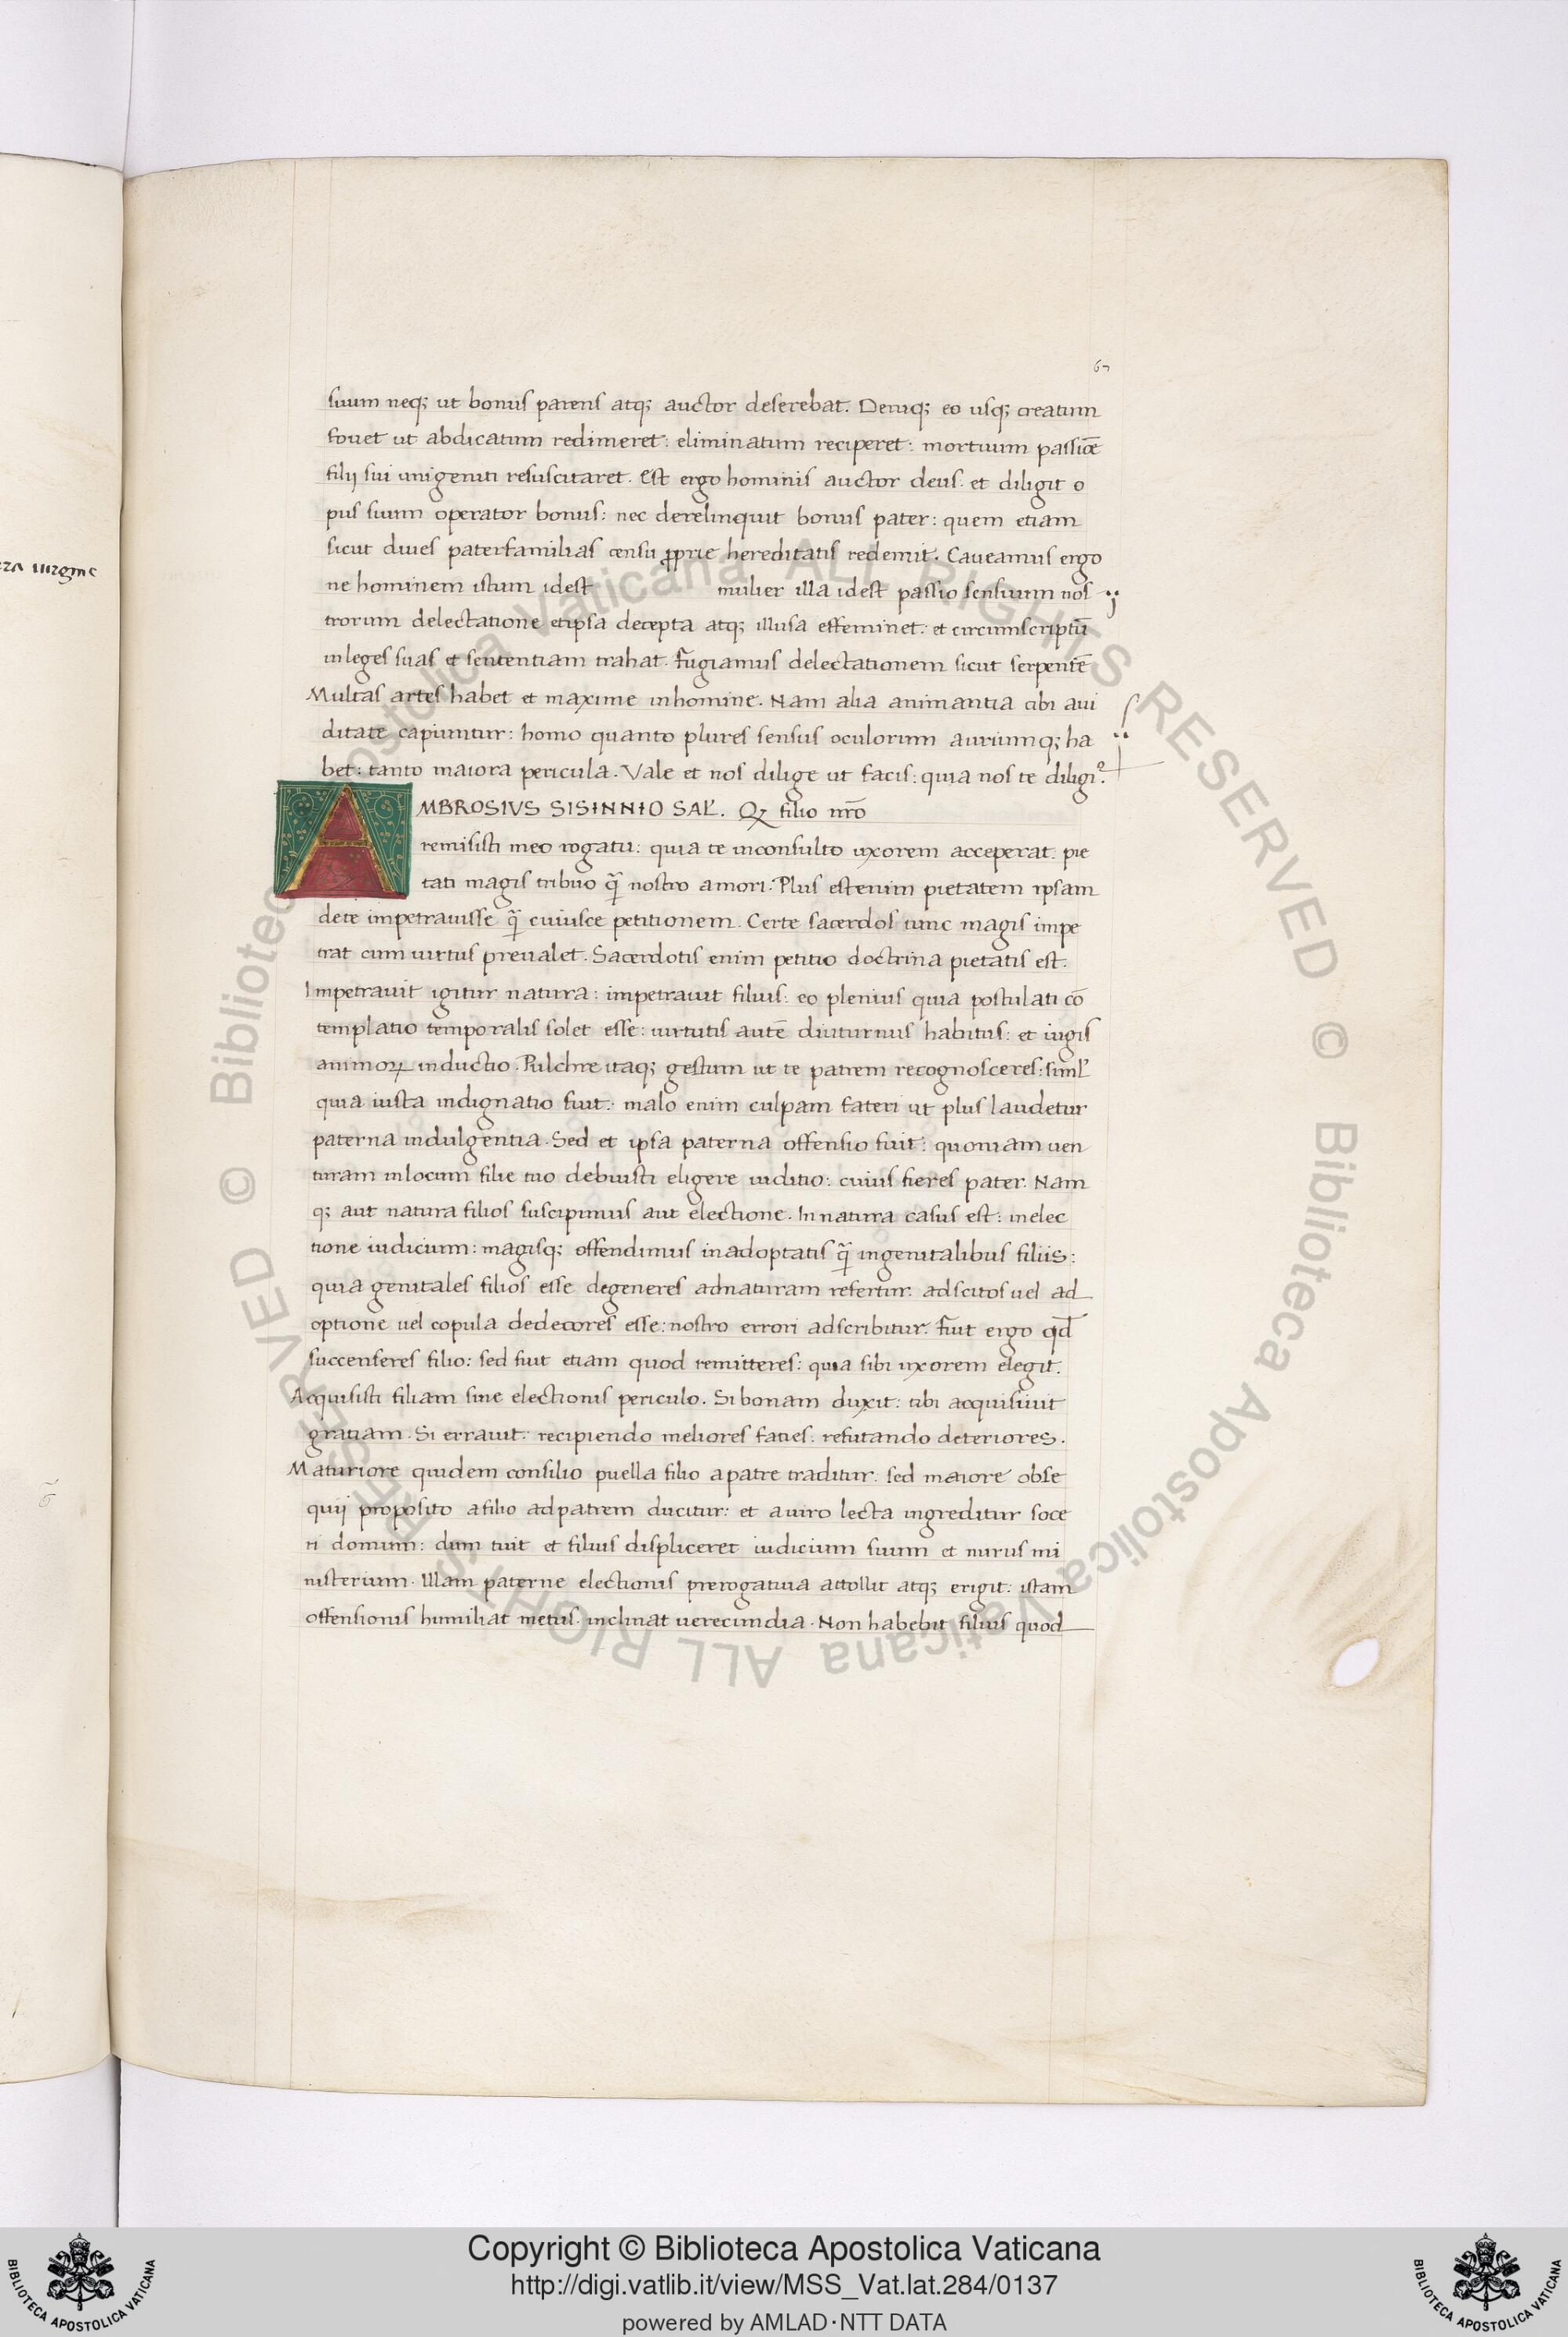 67
suum neq; ut bonus parens atq; auctor deserebat. Deniq; eo usq; creatum
fouet ut abdicatum redimeret: eliminatum reciperet: mortuum passiōe
filij sui unigeniti resuscitaret. Est ergo hominis auctor deus. et diligit o
pus suum operator bonus: nec derelinquit bonus pater: quem etiam
sicut diues paterfamilias censu ꝓprie hereditatis redemit. Caveamus ergo
ne hominem istum idest mulier illa idest passio sensuum nos
trorum delectatione etipsa decepta atq; illusa effeminet: et circumscriptū
inleges suas et sententiam trahat. fugiamus delectationem sicut serpentē
Multas artes habet et maxime inhomine. Nam alia animantia cibi aui
ditate capiuntur: homo quanto plures sensus oculorum auriumq; ha
bet: tanto maiora pericula. Vale et nos dilige ut facis: quia nos te diligi᷒
AMBROSIVS SISINNIO SAL̄. Qꝫ filio nr̄o
remisisti meo rogatu: quia te inconsulto uxorem acceperat: pie
tati magis tribuo q̄ nostro amori. Plus estenim pietatem ipsam
dete impetrauisse q̄ cuiusce petitionem. Certe sacerdos tunc magis impe
trat cum uirtus preualet. Sacerdotis enim petitio doctrina pietatis est.
Impetrauit igitur natura: impetrauit filius: eo plenius quia postulati cō
templatio temporalis solet esse: uirtutis autē diuturnus habitus: et iugis
animoꝝ inductio. Pulchre itaq; gestum ut te patrem recognosceres: siml̄
quia iusta indignatio fuit: malo enim culpam fateri ut plus laudetur
paterna indulgentia. Sed et ipsa paterna offensio fuit: quoniam uen
turam inlocum filie tuo debuisti eligere iuditio: cuius fieres pater. Nam
q; aut natura filios suscipimus aut electione. In natura casus est: inelec
tione iudicium: magisq; offendimus inadoptatis q̄ ingenitalibus filiis:
quia genitales filios esse degeneres adnaturam refertur. adscitos uel ad
optione uel copula dedecores esse: nostro errori adscribitur. fuit ergo qd̄
succenseres filio: sed fuit etiam quod remitteres: quia sibi uxorem elegit.
Acquisisti filiam sine electionis periculo. Si bonam duxit: tibi acquisiuit
gratiam. Si errauit: recipiendo meliores facies: refutando deteriores.
Maturiore quidem consilio puella filio apatre traditur: sed maiore obse
quij proposito afilio adpatrem ducitur: et auiro lecta ingreditur soce
ri domum: dum tuit et filius displiceret iudicium suum et nurus mi
nisterium. Illam paterne electionis prerogatiua attollit atq; erigit: istam
offensionis humiliat metus. inclinat uerecundia. Non habebit filius quod
Copyright © Biblioteca Apostolica Vaticana
http://digi.vatlib.it/view/MSS_Vat.lat.284/0137
powered by AMLAD·NTT DATA
BIBLIOTECA APOSTOLICA VATICANA
BIBLIOTECA APOSTOLICA VATICANA
© Biblioteca Apostolica Vaticana ALL RIGHTS RESERVED © Biblioteca Apostolica Vaticana ALL RIGHTS RESERVED